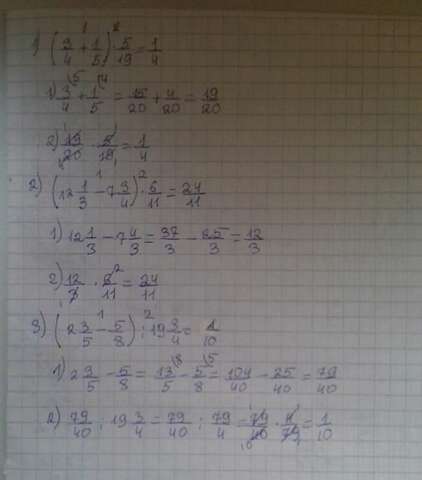 1) (3/4 + 1/5) · 5/19 = 1/4
1) 3/4 + 1/5 = 15/20 + 4/20 = 19/20
2) 19/20 · 5/19 = 1/4
2) (12 1/3 - 7 3/4) · 6/11 = 24/11
1) 12 1/3 - 7 4/3 = 37/3 - 25/3 = 12/3
2) 12/3 · 6/11 = 24/11
3) (2 3/5 - 5/8) : 19 3/4 = 1/10
1) 2 3/5 - 5/8 = 13/5 - 5/8 = 104/40 - 25/40 = 79/40
2) 79/40 : 19 3/4 = 79/40 : 79/4 = 79/40 · 4/79 = 1/10